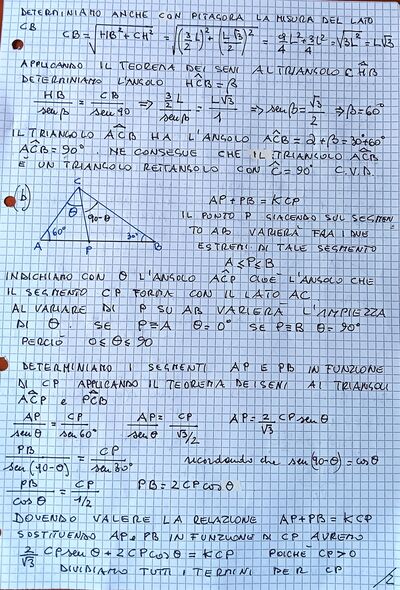 DETERMINIAMO ANCHE CON PITAGORA LA MISURA DEL LATO
CB
CB = √(HB² + CH²) = √((3/2 L)² + (L√3/2)²) = √(9/4 L² + 3/4 L²) = √3L² = L√3
APPLICANDO IL TEOREMA DEI SENI AL TRIANGOLO CĤB
DETERMINIAMO L'ANGOLO HĈB = β
HB/sen β = CB/sen 90 ⇒ (3/2 L)/sen β = L√3/1 ⇒ sen β = √3/2 ⇒ β = 60°
IL TRIANGOLO AĈB HA L'ANGOLO AĈB = α + β = 30° + 60°
AĈB = 90°. NE CONSEGUE CHE IL TRIANGOLO AĈB
È UN TRIANGOLO RETTANGOLO CON Ĉ = 90° C.V.D.
b)
C
θ
90-θ
60°
30°
A
P
B
AP + PB = KCP
IL PUNTO P GIACENDO SUL SEGMEN
TO AB VARIERÀ FRA I DUE
ESTREMI DI TALE SEGMENTO
A ≤ P ≤ B
INDICHIAMO CON θ L'ANGOLO AĈP CIOÈ L'ANGOLO CHE
IL SEGMENTO CP FORMA CON IL LATO AC.
AL VARIARE DI P SU AB VARIERÀ L'AMPIEZZA
DI θ. SE P≡A θ = 0° SE P≡B θ = 90°
PERCIÒ 0 ≤ θ ≤ 90
DETERMINIAMO I SEGMENTI AP E PB IN FUNZIONE
DI CP APPLICANDO IL TEOREMA DEI SENI AI TRIANGOLI
AĈP e PĈB
AP/sen θ = CP/sen 60° AP/sen θ = CP/(√3/2) AP = 2/√3 CP sen θ
PB/sen(90-θ) = CP/sen 30° ricordando che sen(90-θ) = cos θ
PB/cos θ = CP/(1/2) PB = 2 CP cos θ
DOVENDO VALERE LA RELAZIONE AP + PB = KCP
SOSTITUENDO AP e PB IN FUNZIONE DI CP AVREMO
2/√3 CP sen θ + 2 CP cos θ = KCP POICHÈ CP > 0
DIVIDIAMO TUTTI I TERMINI PER CP
/2